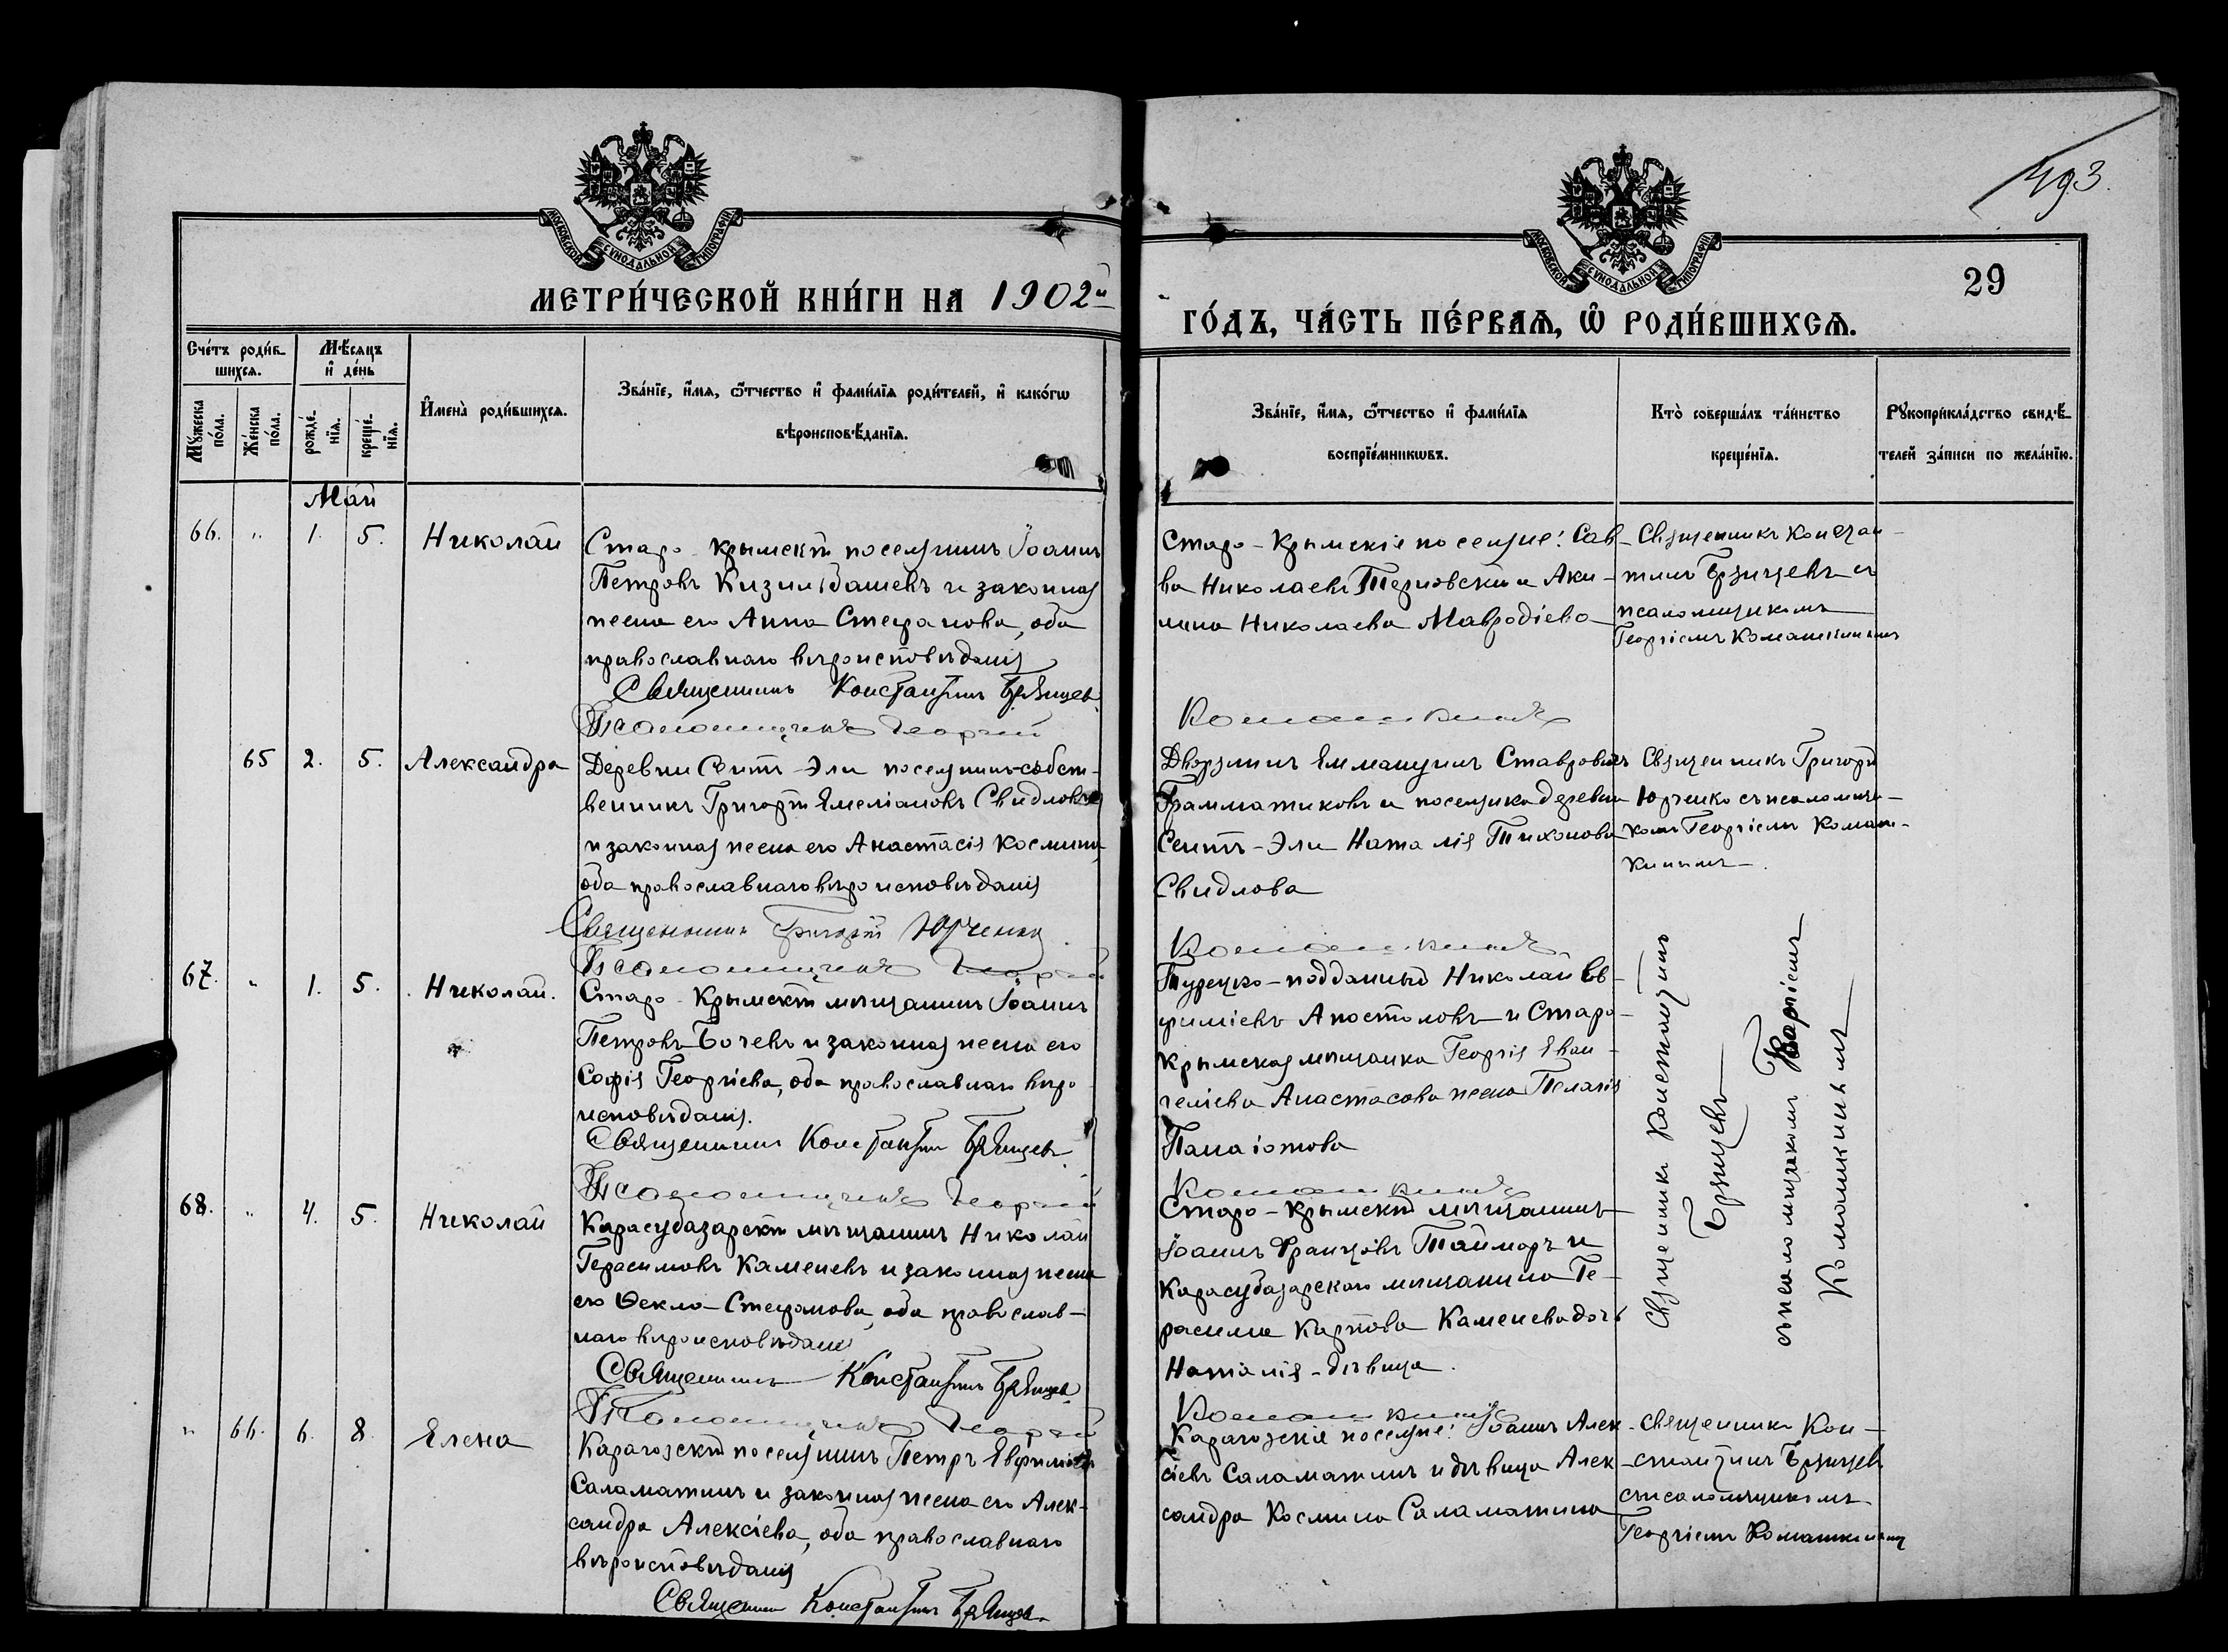 493.
МОСКОВСКОЙ СУНОДАЛЬНОЙ ТИПОГРАФІИ
МОСКОВСКОЙ СУНОДАЛЬНОЙ ТИПОГРАФІИ
29
МЕТРИ́ЧЕСКОЙ КНИ́ГИ НА 1902й
ГО́ДЪ, ЧА́СТЬ ПЕ́РВАѦ, Ѡ РОДИ́ВШИХСѦ.
Сче́тъ роди́в-
шихсѧ.
Мꙋжеска
по́ла.
Же́нска
по́ла.
Мѣ́сяцъ
и де́нь
рожде́-
нїѧ.
креще́-
нїѧ.
Имена̀ роди́вшихсѧ.
Зва́нїе, и́мѧ, ѻ́тчество и фами́лїѧ роди́телей, и како́гѡ
вѣроисповѣ́данїѧ.
Зва́нїе, и́мѧ, ѻ́тчество и фами́лїѧ
воспрїе́мникѡвъ.
Кто̀ соверша́лъ та́инство
креще́нїѧ.
Рꙋкоприкла́дство свидѣ́-
телей за́писи по жела́нїю.
Май
66. " 1. 5. Николай
Старо-Крымскій поселянинъ Іоаннъ
Петровъ Кизилбашевъ и законная
жена его Анна Стефанова, оба
православнаго вѣроисповѣданія
Священникъ Константинъ Брянцев
Псаломщикъ Георгій
Старо-Крымскіе поселяне: Сав-
ва Николаевъ Терновскій и Аки-
лина Николаева Мавродіева
Комашкинъ
Священникъ Констан-
тинъ Брянцевъ съ
псаломщикомъ
Георгіемъ Комашкинымъ
65 2. 5. Александра
Деревни Сеитъ-Эли поселянинъ-собст-
венникъ Григорій Емеліановъ Свидловъ
и законная жена его Анастасія Космина
оба православнаго вѣроисповѣданія
Священникъ Григорій Юрченко
Псаломщикъ Георгій
Дворянинъ Еммануилъ Ставровичъ
Грамматиковъ и поселянка деревни
Сеитъ-Эли Наталія Тихонова
Свидлова
Комашкинъ
Священникъ Григорій
Юрченко съ псаломщи-
комъ Георгіемъ Комаш-
кинымъ.
67. " 1. 5. Николай.
Старо-Крымскій мѣщанинъ Іоаннъ
Петровъ Бочевъ и законная жена его
Софія Георгіева, оба православнаго вѣро
исповѣданія.
Священникъ Константинъ Брянцевъ
Псаломщикъ Георгій
Турецко-подданный Николай Ев-
фиміевъ Апостоловъ и Старо-
Крымская мѣщанка Георгія Еван-
гелієва Анастасова жена Пелагія
Панаіотова
Комашкинъ
Священникъ Константинъ
Брянцевъ
съ псаломщикомъ Георгіемъ
Комашкинымъ
68. " 4. 5. Николай
Карасубазарскій мѣщанинъ Николай
Герасимовъ Каменевъ и законная жена
его Ѳекла Стефанова, оба православ-
наго вѣроисповѣданія
Священникъ Константинъ Брянцев
Псаломщикъ Георгій
Старо-Крымскій мѣщанинъ
Іоаннъ Францовъ Таймаръ и
Карасубазарскаго мѣщанина Ге-
расима Карпова Каменева дочь
Наталія-дѣвица.
Комашкинъ
" 66. 6. 8. Елена
Карагозскій поселянинъ Петръ Евфиміевъ
Саламатинъ и законная жена его Алек-
сандра Алексіева, оба православнаго
вѣроисповѣданія
Священник Константинъ Брянцев.
Карагозскіе поселяне: Іоаннъ Алек-
сіевъ Саламатинъ и дѣвица Алек-
сандра Космина Саламатина
Священникъ Кон-
стантинъ Брянцевъ
съ псаломщикомъ
Георгіемъ Комашкинымъ